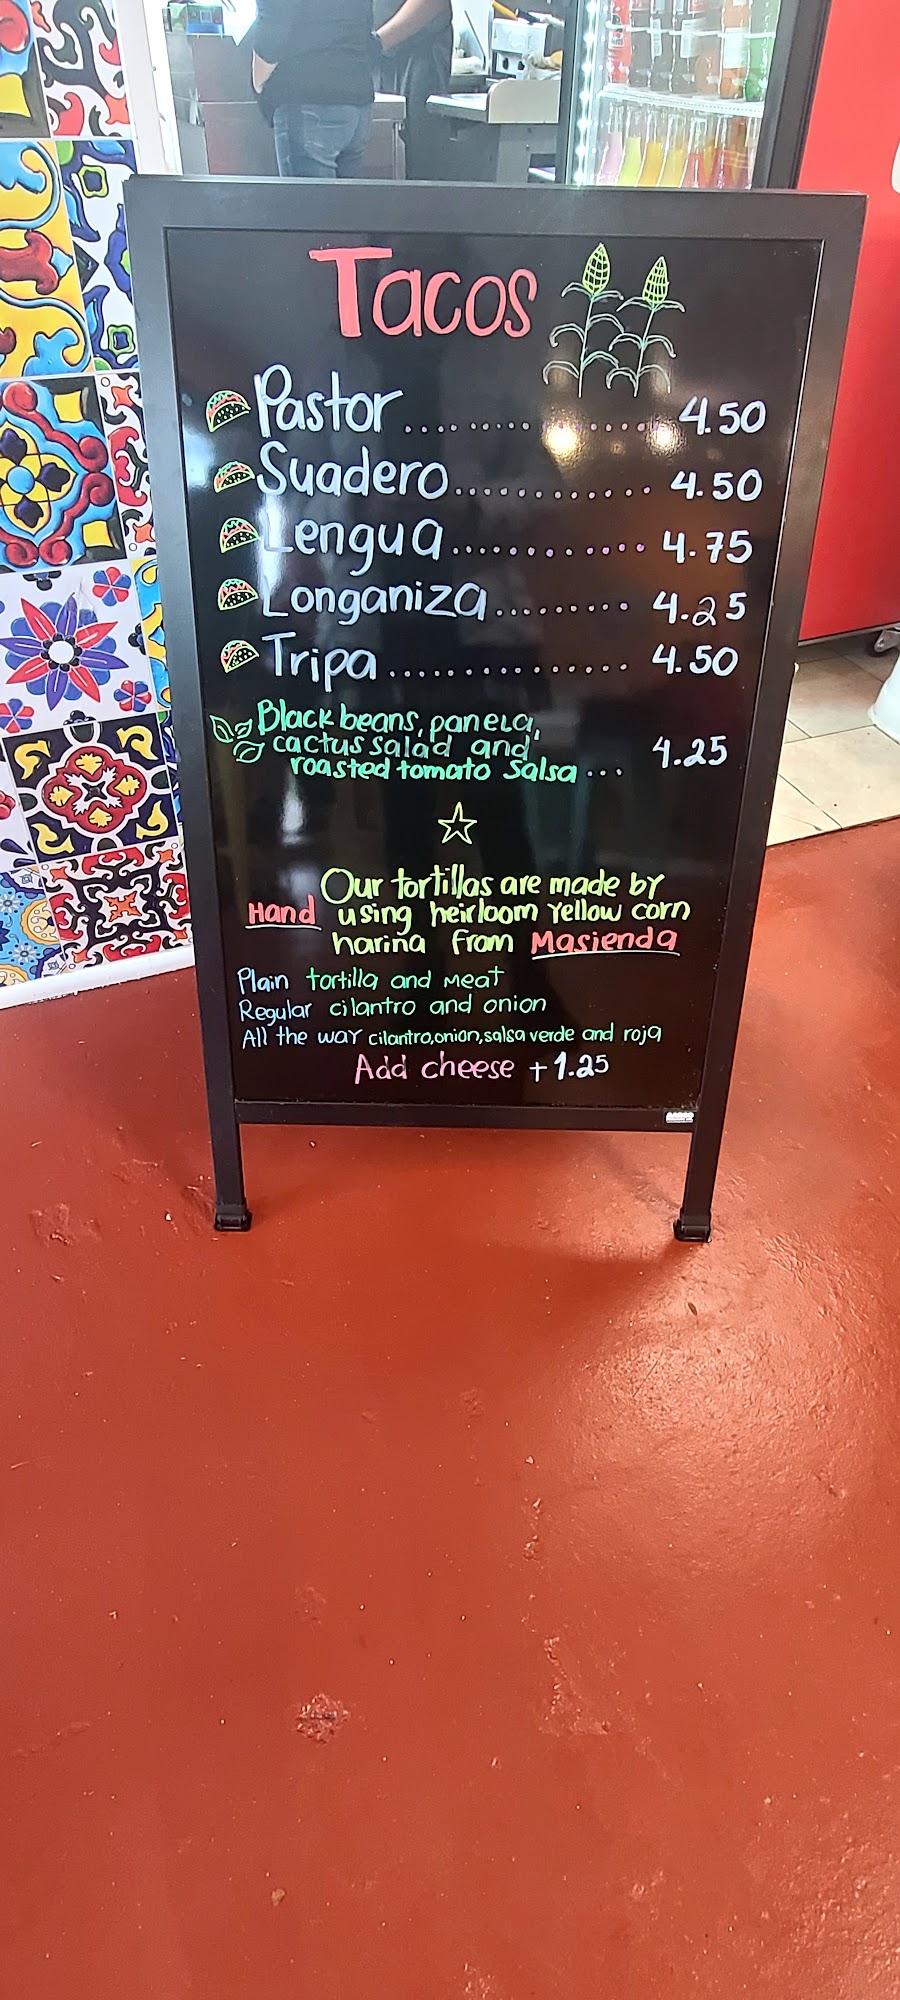 Tacos
Pastor .... ..... ....... 4.50
Suadero............ 4.50
Lengua............ 4.75
Longaniza......... 4.25
Tripa.............. 4.50
Black beans, panela,
cactus salad and
roasted tomato salsa ... 4.25
Our tortillas are made by
Hand using heirloom yellow corn
harina from Masienda
Plain tortilla and meat
Regular cilantro and onion
All the way cilantro,onion,salsa verde and roja
Add cheese +1.25